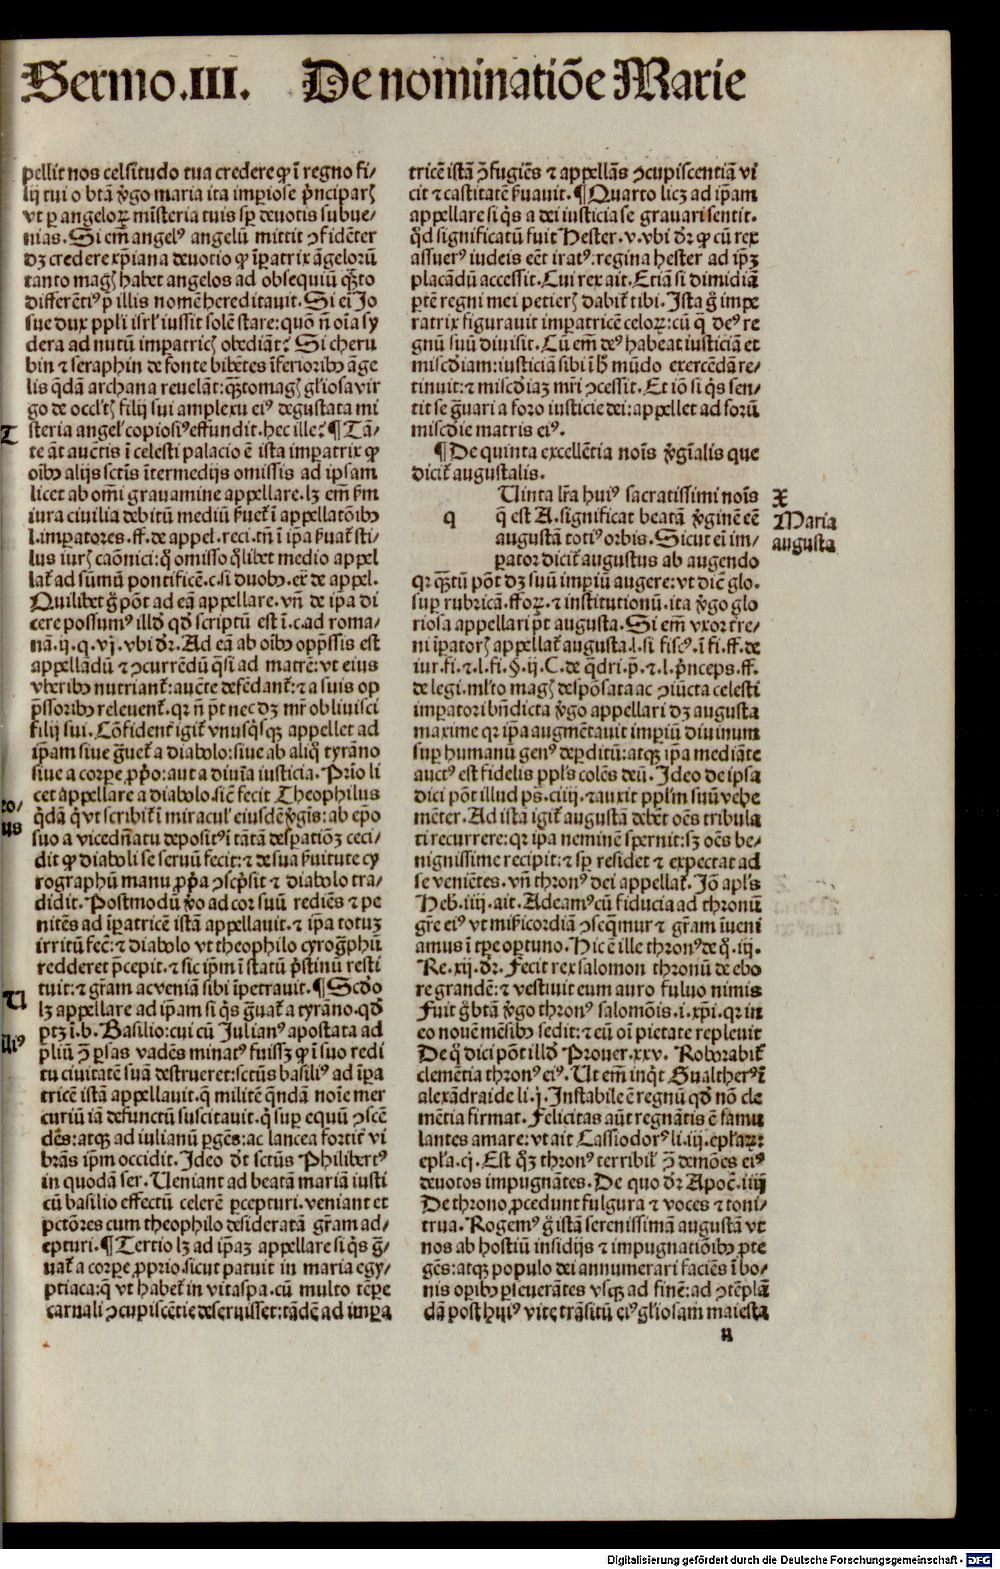 Sermo.III. De nominatiōe Marie
pellit nos celsitudo tua credere ꝙ ī regno fi⸗
lij tui o btā v̄go maria ita imꝑiose p̄ncipariꝫ
vt ꝑ angeloꝝ mīsteria tuis sꝑ deuotis subue⸗
nias. Si em̄ angelꝰ angelū mittit ꝯfidēter
dꝫ credere xp̄iana deuotio ꝙ īꝑatrix āgeloꝝ
tanto magꝭ habet angelos ad obsequiū qꝫto
differētiꝰ p̄ illis nomē hereditauit. Si ei Jo
sue dux ppl'i isrl' iussit solē stare: quō n̄ oīa sy
dera ad nutū imꝑatricꝭ obediāt? Si cheru
bin ⁊ seraphin de fonte bibētes īferioribꝰ āge
lis q̄dā archana reuelāt: qꝫtomagꝭ gl'iosa vir
go de occl'tꝭ filij sui amplexu eiꝰ degustata mi
steria angel' copiosiꝰ effundit. hec ille? ¶ Tā⸗
te āt auctīs ī celesti palacio ē ista imꝑatrix ꝙ
oībꝰ alijs sctīs ītermedijs omissis ad ipsam
licet ab om̄i grauamine appellare. lꝫ em̄ ẜm
iura ciuilia debitū mediū ẜuet' ī appellatōibꝰ
l. imꝑatores. ff. de appel. reci. tn̄ ī ip̄a ẜuat' sti⸗
lus iurꝭ caōnici: q̄ omisso q̄libet medio appel
lat' ad sūmū pontificē. c. si duobꝰ. ex̄ de appel.
Quilibet g̊ pōt ad eā appellare. vn̄ de ip̄a di
cere possumꝰ illd̄ qd̄ scriptū est ī. c. ad roma⸗
nā. ij. q. vj. vbi dr̄. Ad eā ab oībꝰ opp̄ssis est
appellādū ⁊ ꝯcurrēdū q̄si ad matrē: vt eius
vberibꝰ nutriant': auctē defēdant': ⁊ a suis op
p̄ssoribꝰ releuent'. qꝛ n̄ p̄t nec dꝫ mr̄ obliuisci
filij sui. Cōfident' igit' vnusq̄sqꝫ appellet ad
ip̄am siue g̊uet' a diabolo: siue ab aliq̊ tyrāno
siue a corꝑe ꝓpō: aut a diuīa iusticia. Prīo li
cet appellare a diabolo. sic̄ fecit Theophilus
q̄dā q̄ vt scribit' ī miracul' eiusdē v̄gīs: ab ep̄o
suo a vicedn̄atu depositꝰ ī tātā desꝑatiōꝫ ceci⸗
dit ꝙ diaboli se seruū fecit: ⁊ de sua ẜuitute cy
rographū manu ꝓp̄a ꝯsc̄psit ⁊ diabolo tra⸗
didit. Postmodū v̊o ad cor suū rediēs ⁊ pe
nitēs ad īꝑatricē istā appellauit. ⁊ ip̄a totuꝫ
irritū fec̄: ⁊ diabolo vt theophilo cyrog̊phū
redderet p̄cepit. ⁊ sic ip̄m ī statū p̄stinū resti
tuit: ⁊ gr̄am ac veniā sibi īpetrauit. ¶ Scd̄o
lꝫ appellare ad ip̄am si q̄s g̊uat' a tyrāno. qd̄
ptꝫ ī. b. Basilio: cui cū Julianꝰ apostata ad
p̄liū ꝯ̄ ꝑsas vadēs minatꝰ fuissꝫ ꝙ ī suo redi
tu ciuitatē suā destrueret: sctūs basiliꝰ ad īꝑa
tricē istā appellauit. q̄ militē q̄ndā noīe mer
curiū iā defunctū suscitauit. q̊ suꝑ equū ꝯscē
dēs: atqꝫ ad iulianū ꝑgēs: ac lancea fortit' vi
brās ip̄m occidit. Ideo dr̄ sctūs Philibertꝰ
in quodā ser. Veniant ad beatā mariā iusti
cū basilio effectū celerē ꝑcepturi. veniant et
pctōres cum theophilo desideratā gr̄am ad⸗
epturi. ¶ Tertio lꝫ ad ip̄aꝫ appellare si q̄s g̊⸗
uat' a corꝑe ꝓprio. sicut patuit in maria egy⸗
ptiaca: q̄ vt habet' in vitaspa. cū multo tēꝑe
carnali ꝯcupiscētie deseruisset: tādē ad imꝑa
tricē istā ꝯfugiēs ⁊ appellās ꝯcupiscentiā vi
cit ⁊ castitatē ẜuauit. ¶ Quarto licꝫ ad ip̄am
appellare si q̄s a dei iusticia se grauari sentit.
qd̄ significatū fuit Hester. v. vbi dr̄ ꝙ cū rex
assuerꝰ iudeis eēt iratꝰ: regina hester ad ip̄ꝫ
placādū accessit. Cui rex ait. Etiā si dimidiā
ꝑtē regni mei petierꝭ dabit' tibi. Ista g̊ impe
ratrix figurauit imꝑatricē celoꝝ: cū q̄ deꝰ re
gnū suū diuisit. Cū em̄ deꝰ habeat iusticiā et
misc̄diam: iusticiā sibi ī h̊ mūdo exercēdā re⸗
tinuit: ⁊ misc̄diaꝫ mr̄i ꝯcessit. Et iō si q̄s sen⸗
tit se g̊uari a foro iusticie dei: appellet ad forū
misc̄die matris eiꝰ.
¶ De quinta excellētia noīs v̄gīalis que
dicit' augustalis.
q Uinta lr̄a huiꝰ sacratissimi noīs
q̄ est A. significat beatā v̄ginē eē
augustā totiꝰ orbis. Sicut ei im⸗
ꝑator dicit' augustus ab augendo
qꝛ qꝫtū pōt dꝫ suū imꝑiū augere: vt dic̄ glo.
suꝑ rubricā. ffoꝝ. ⁊ institutionū. ita v̄go glo
riosa appellari p̄t augusta. Si em̄ vxor tre⸗
ni īꝑatorꝭ appellat' augusta. l. si fiscꝰ. ī fi. ff. de
iur. fi. ⁊. l. fi. §. ij. C. de q̄dri. p̄. ⁊. l. p̄nceps. ff.
de legi. ml'to magꝭ despōsata ac ꝯiūcta celesti
imꝑatori bn̄dicta v̄go appellari dꝫ augusta
maxime qꝛ ip̄a augmētauit imꝑiū diuinum
suꝑ humanū genꝰ deꝑditū: atqꝫ ip̄a mediāte
auctꝰ est fidelis ppl's colēs deū. Ideo de ipsa
dici pōt illud ps̄. ciiij. ⁊ auxit ppl'm suū vehe
mēter. Ad istā igit' augustā debēt oēs tribula
ti recurrere: qꝛ ip̄a neminē spernit: sꝫ oēs be⸗
nignissime recipit: ⁊ sꝑ residet ⁊ expectat ad
se veniētes. vn̄ thronꝰ dei appellat'. Jō apl's
Heb. iiij. ait. Adeamꝰ cū fiducia ad thronū
gr̄e eiꝰ vt mīricordiā ꝯseq̄mur ⁊ gr̄am īueni
amus ī tꝑe oportuno. Hic ē ille thronꝰ de q̊. iij.
Re. xij. dr̄. Fecit rex salomon thronū de ebo
re grandē: ⁊ vestiuit eum auro fuluo nimis
Fuit g̊ btā v̄go thronꝰ salomōis. i. xp̄i. qꝛ in
eo nouē mēsibꝰ sedit: ⁊ eū oī pietate repleuit
De q̊ dici pōt illd̄ Prouer. xxv. Roborabit'
clemētia thronꝰ eiꝰ. Ut em̄ inq̄t Gualtherꝰ ī
alexādraide li. j. Instabile ē regnū qd̄ nō cle
mētia firmat. Felicitas aūt regnātis ē famu
lantes amare: vt ait Cassiodorꝰ li. iij. epl'aꝝ:
epl'a. cj. Est q̊ꝫ thronꝰ terribil' ꝯ̄ demōes eiꝰ
deuotos impugnātes. De quo dr̄ Apoc̄. iiij
De throno ꝓcedunt fulgura ⁊ voces ⁊ toni⸗
trua. Rogemꝰ g̊ istā serenissimā augustā vt
nos ab hostiū insidijs ⁊ impugnatiōibꝰ ꝓte
gēs: atqꝫ populo dei annumerari faciēs ī bo⸗
nis oꝑibꝰ ꝑseuerātes vsqꝫ ad finē: ad ꝯtēplā
dā post huiꝰ vite trāsitū eiꝰ gl'iosam maiesta
X
Maria
augusta
T
ro⸗
us
U
liꝰ
n
Digitalisierung gefördert durch die Deutsche Forschungsgemeinschaft - DFG